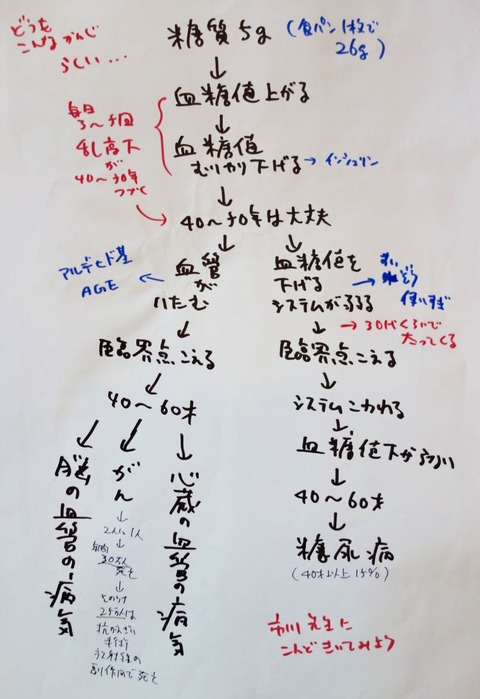 どうも
こんな かんじ
らしい...
糖質 5g
(食パン1枚で
26g)
↓
血糖値上がる
↓
血糖値
むりやり下げる
→ インシュリン
毎日
3～5回
乱高下
が
40～50年
つづく
↓
40～50年は大丈夫
↓
血管
が
いたむ
アルデヒド基
AGE
↓
臨界点こえる
↓
40～60才
↓
脳の血管の病気
↓
がん
↓
2人に1人
↓
年間
30万人
死亡
↓
そのうち
25万人は
抗がんざい
手術
放射線の
副作用で死亡
↓
心臓の血管の病気
↓
血糖値を
下げる
システムが弱る
→ すいぞう
使いすぎ
→ 30代くらいで
たってくる
↓
臨界点こえる
↓
システムこわれる
↓
血糖値下がらない
↓
40～60才
↓
糖尿病
(40才以上15%)
市川先生に
こんどきいてみよう